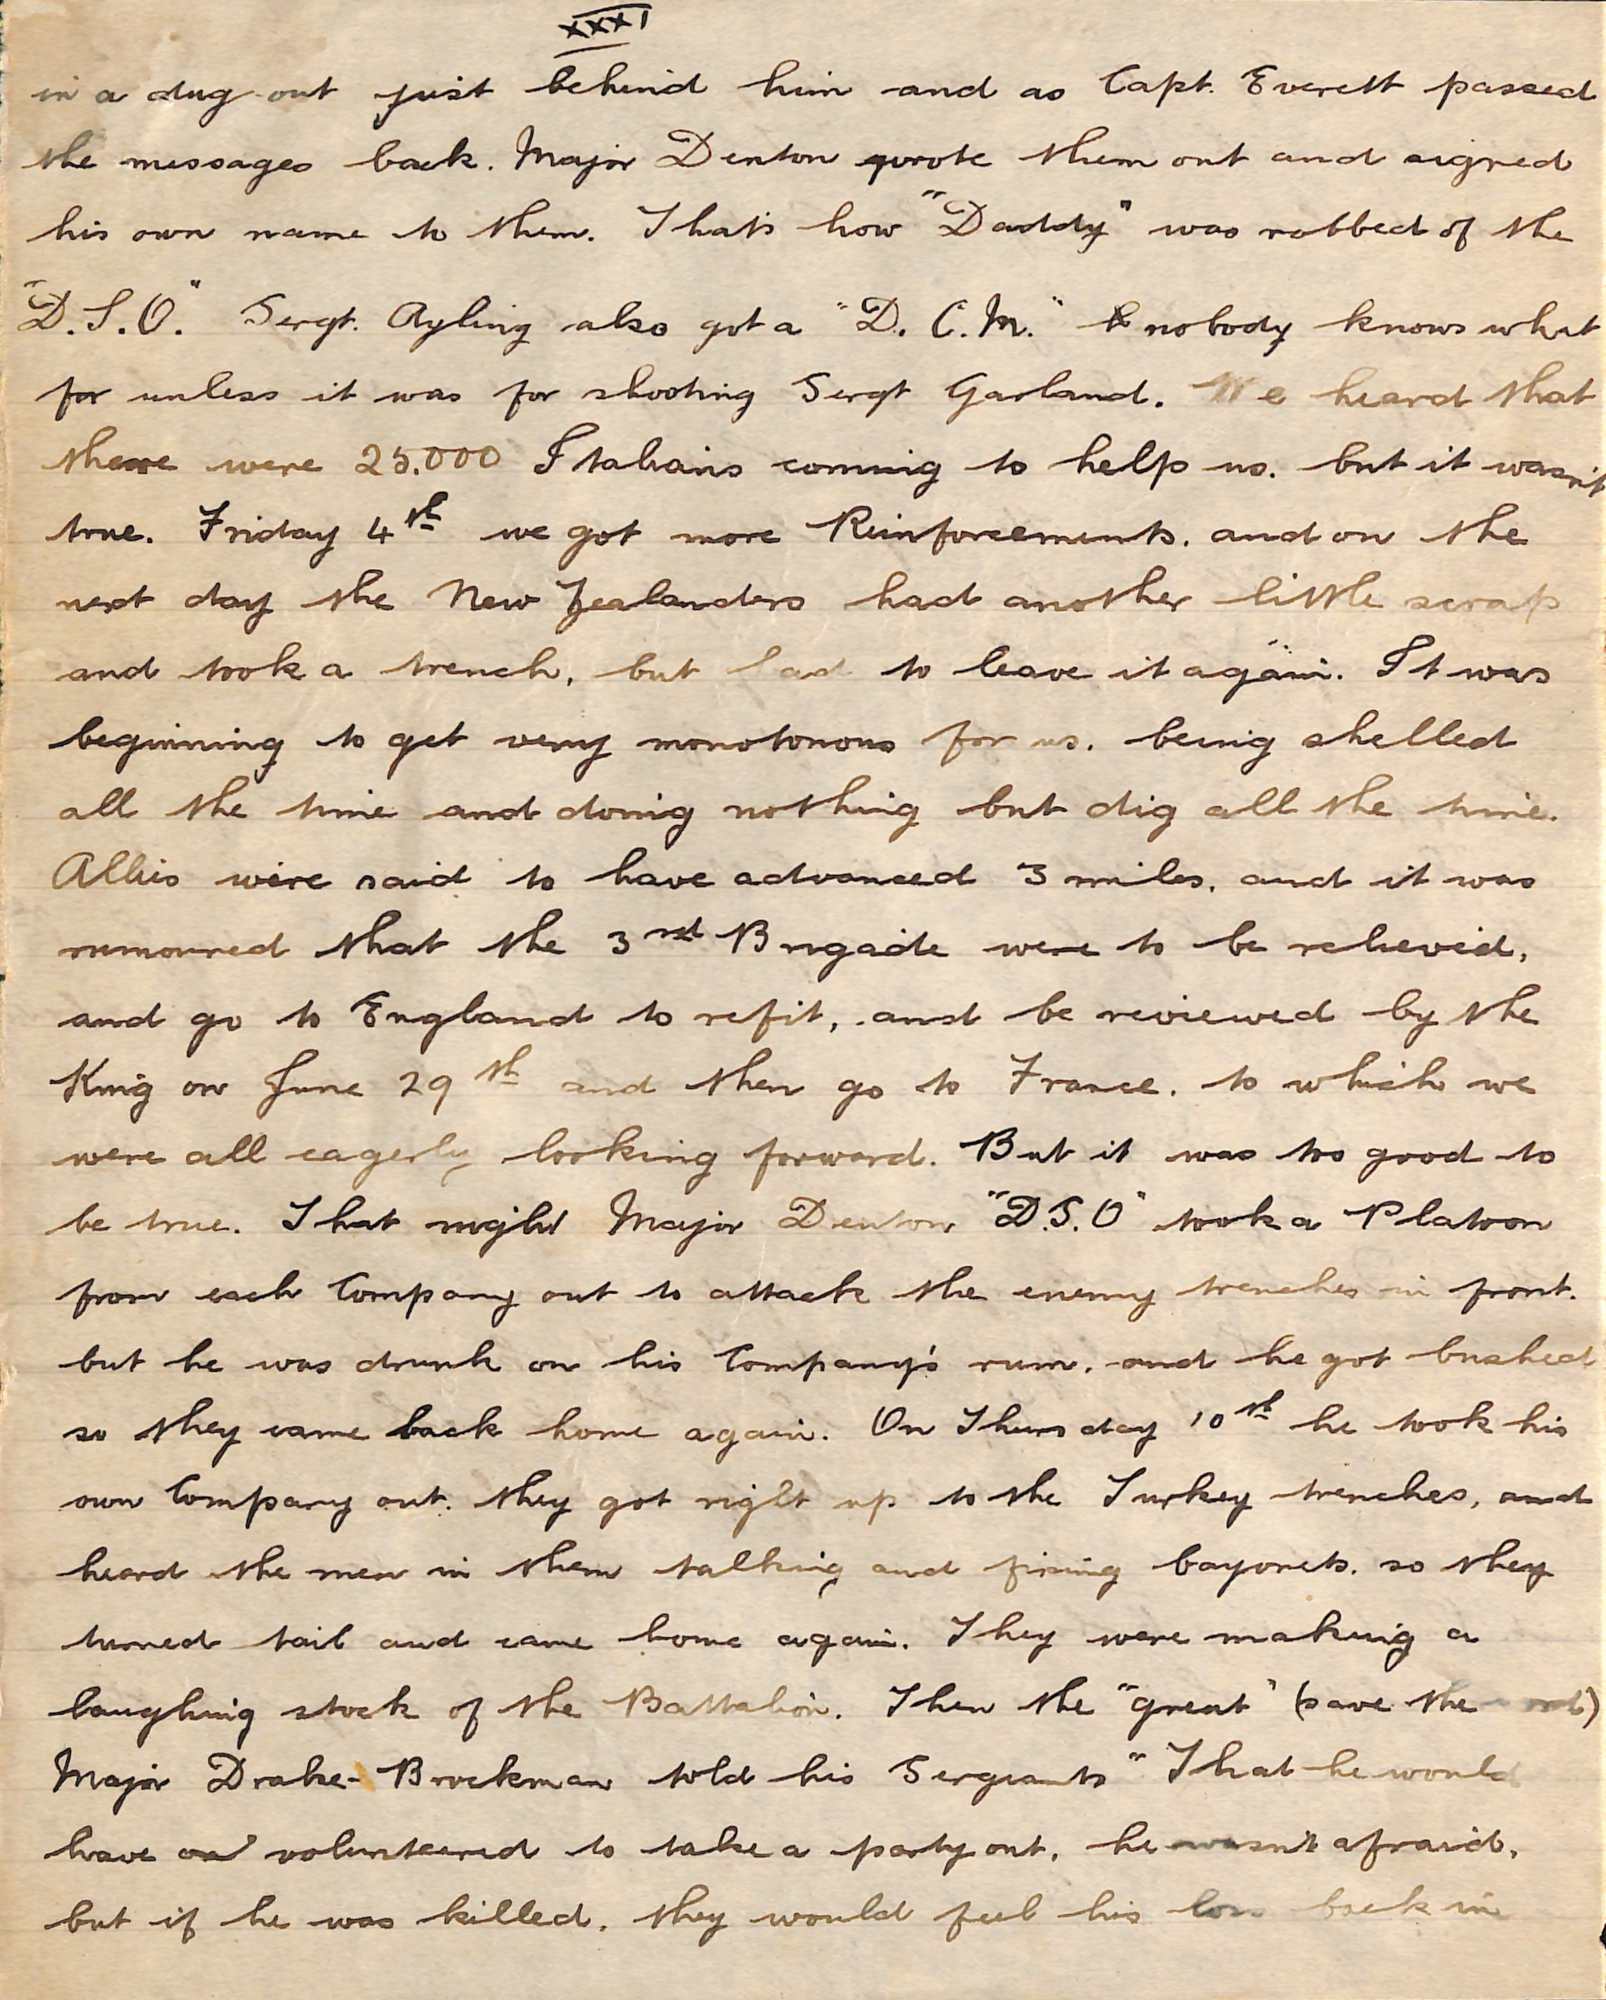 XXXI
in a dug out just behind him and as Capt. Everett passed
the messages back. Major Denton wrote them out and signed
his own name to them. Thats how "Daddy" was robbed of the
"D.S.O." Sergt. Ayling also got a "D.C.M." nobody knows what
for unless it was for shooting Sergt Garland. We heard that
there were 25.000 Italians coming to help us. but it wasn't
true. Friday 4th we got more Reinforcements. and on the
next day the New Zealanders had another little scrap
and took a trench, but had to leave it again. It was
beginning to get very monotonous for us. being shelled
all the time and doing nothing but dig all the time.
Allies were said to have advanced 3 miles. and it was
rumoured that the 3rd Brigade were to be relieved,
and go to England to refit, and be reviewed by the
King on June 29th and then go to France. to which we
were all eagerly looking forward. But it was too good to
be true. That night Major Denton "D.S.O" took a Platoon
from each Company out to attack the enemy trenches in front.
but he was drunk on his Company's rum. and he got bushed
so they came back home again. On Thursday 10th he took his
own Company out. they got right up to the Turkey trenches, and
heard the men in them talking and fixing bayonets. so they
turned tail and came home again. They were making a
laughing stock of the Battalion. Then the "great" (save the
Major Drake-Brockman told his Sergeants "That he would
have volunteered to take a party out, he wasn't afraid,
but if he was killed. they would feel his loss back in